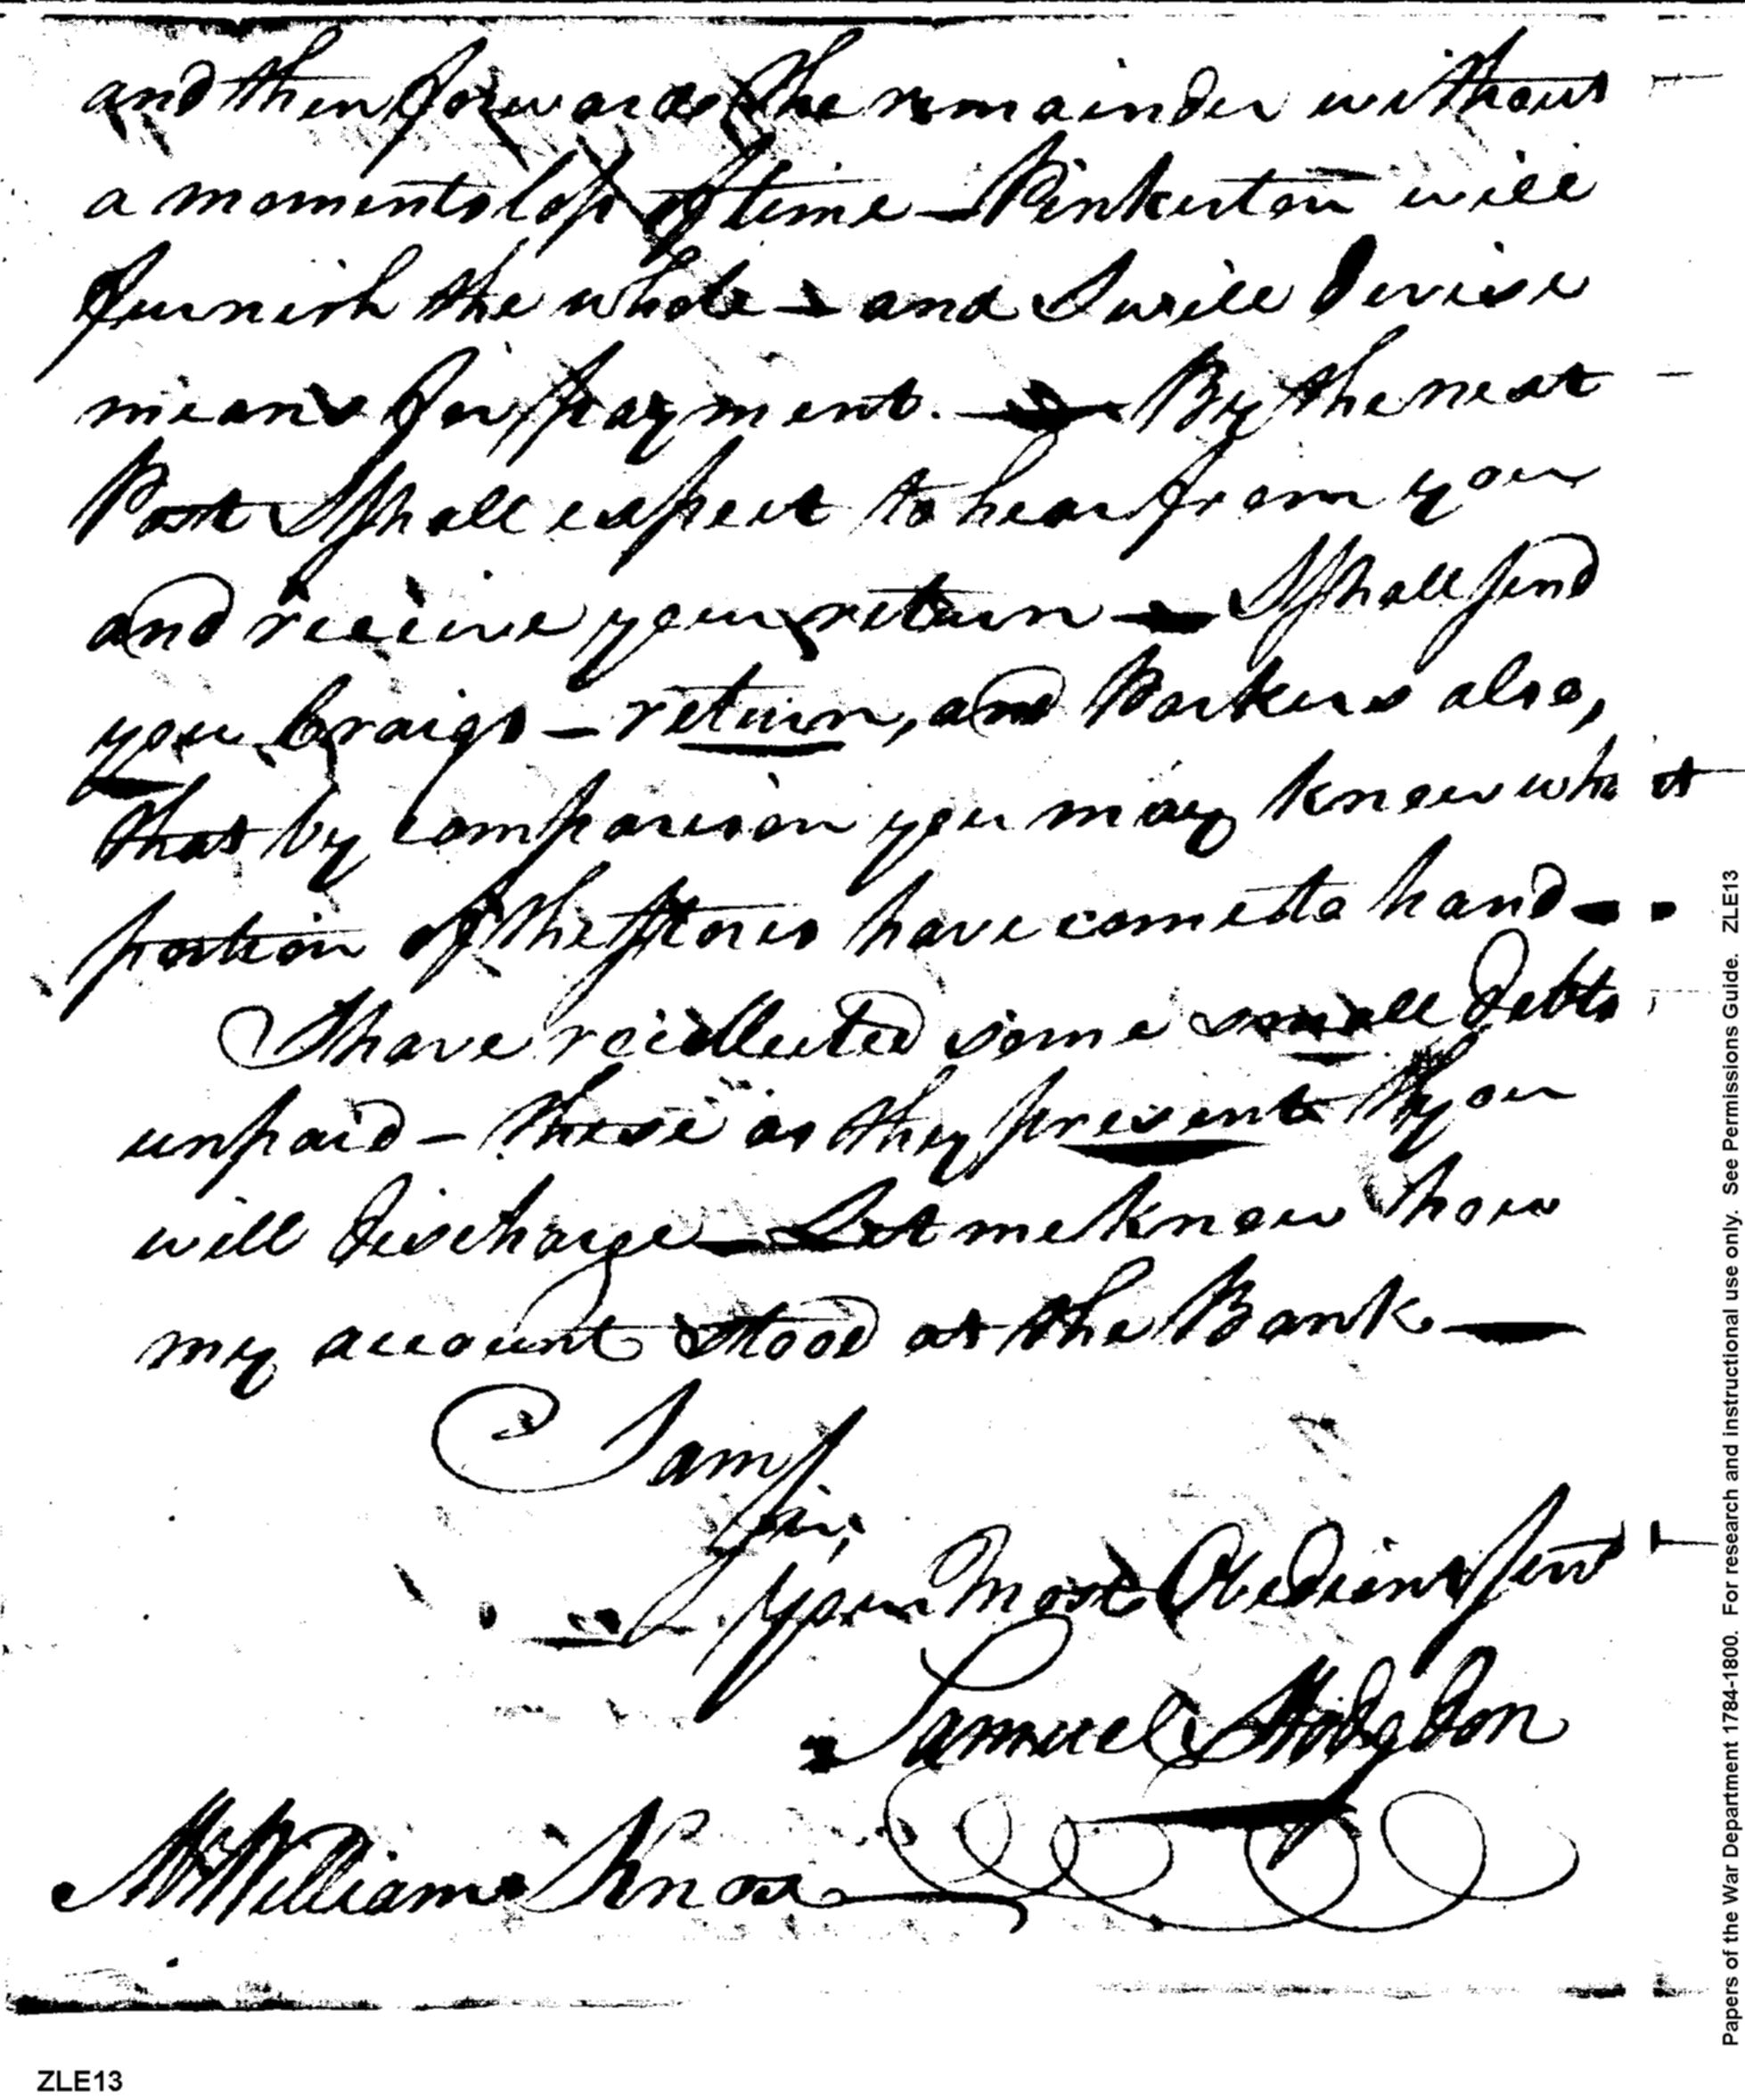 and then forward the remainder without
a moments loss of time — Pinkerton will
furnish the whole — and I will devise
means for payment. — By the next
Post I shall expect to hear from you
and receive your return — I shall send
you Craigs — return, and Parkers also,
that by comparison you may know what
portion of the stores have come to hand —
I have recollected some small debts
unpaid — these as they present thy you
will discharge — Let me know how
my account stood at the Bank —
I am
Sir,
your Most Obedient Servt
Samuel Hodgdon
Mr William Knox
Papers of the War Department 1784-1800. For research and instructional use only. See Permissions Guide. ZLE13
ZLE13